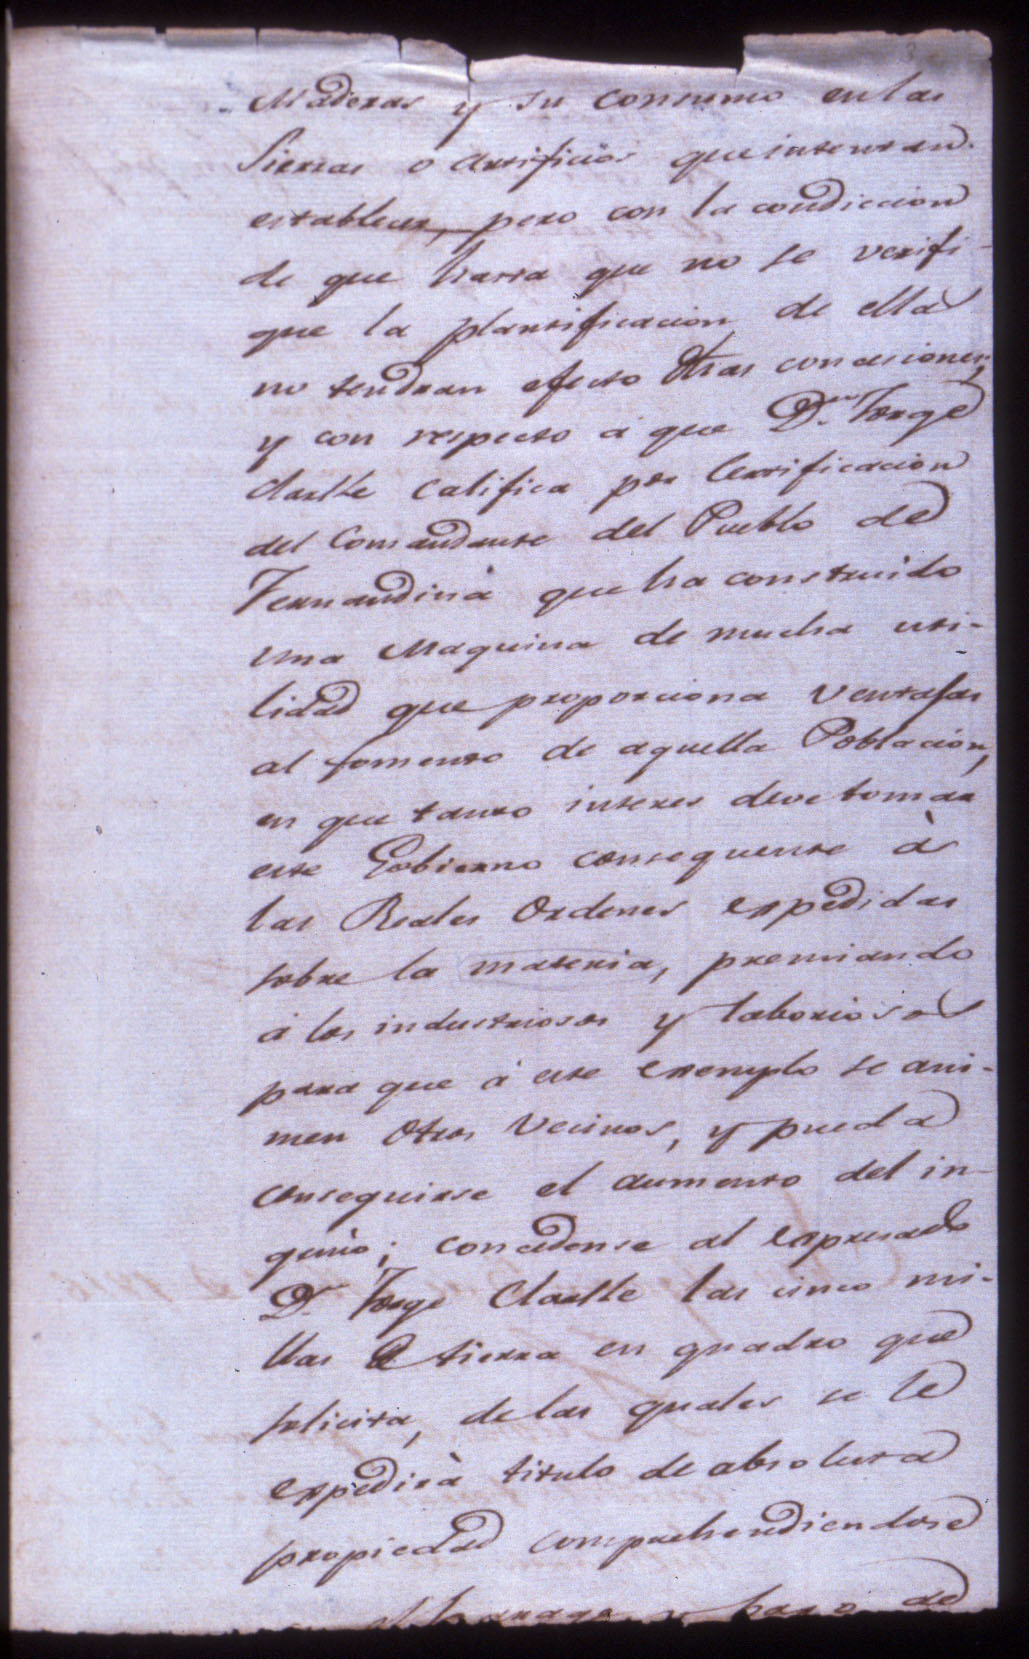 Maderas y su consumo en las
Sierras o Artificios que intentan
establecer, pero con la condiccion
de que hasta que no se verifi-
que la plantificacion de ella
no tendran efecto dhas concesiones;
y con respecto a que Dn. Jorge
Clarke califica por Certificacion
del Comandante del Pueblo de
Fernandina que ha construido
una Maquina de mucha uti-
lidad que proporciona ventajas
al fomento de aquella Poblacion,
en que tanto interes deve tomar
este Gobierno consequente à
las Reales Ordenes expedidas
sobre la materia, premiando
á los industriosos y laboriosos
para que á este exemplo se ani-
men otros Vecinos, y pueda
conseguirse el aumento del in-
genio; concedense al expresado
Dn. Jorge Clarke las cinco mi-
llas de tierra en quadro que
solicita, de las quales se le
expedirà titulo de absoluta
propiedad comprehendiendose
de